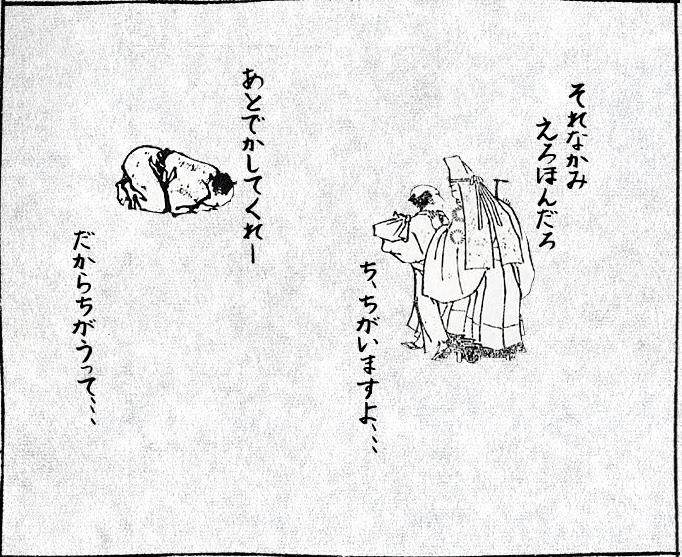 それなかみ
えろほんだろ
ち、ちがいますよ、、、
あとでかしてくれー
だからちがうって、、、